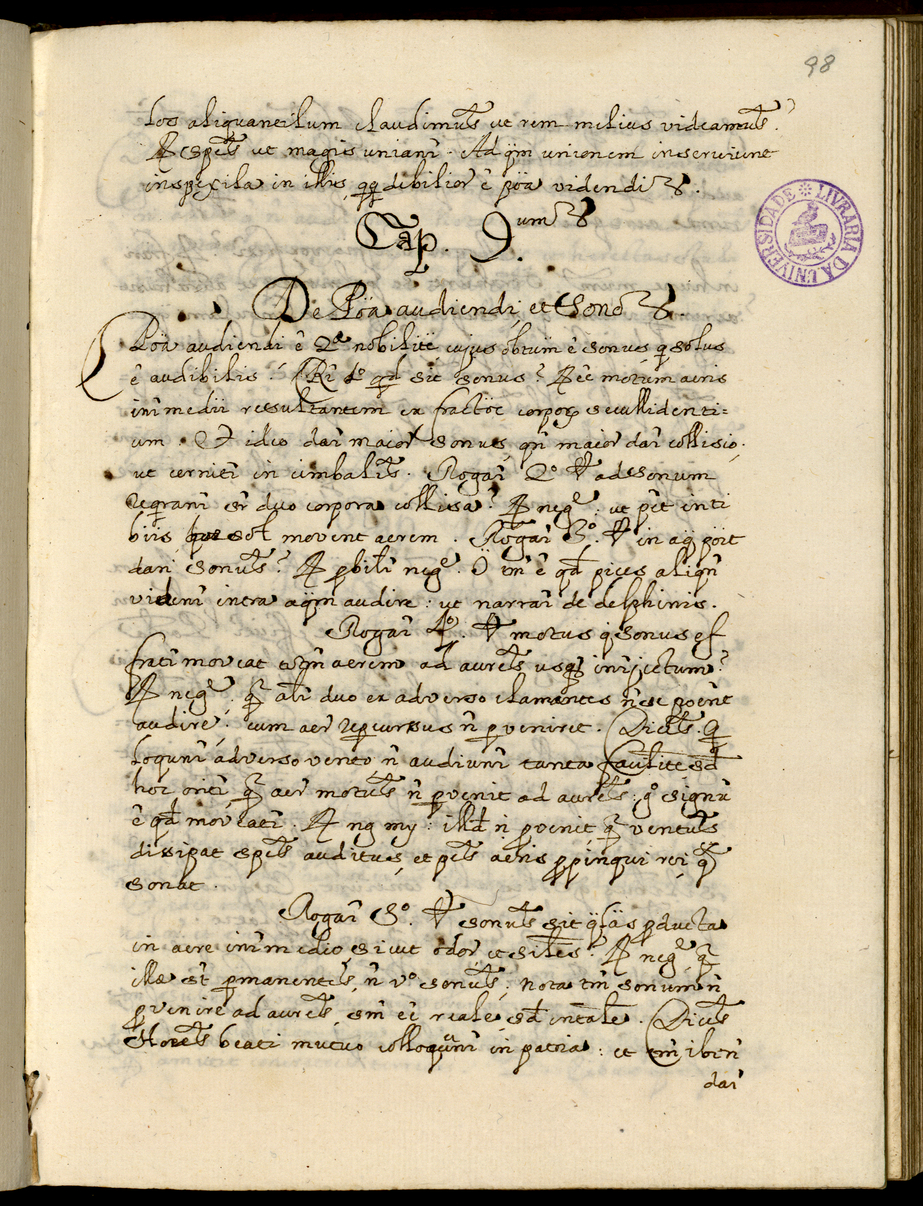 98
los aliquantulum claudimus ut rem melius videamus?
R species ut magis uniant͂. Ad qm̃ unionem inserviunt
inspexila in illis, qq debilior ẽ põa videndi.
LIVRARIA DA UNIVERSIDADE
Cap. 9.um
De Põa audiendi, et Sono.
Põa audiendi ẽ 2ª nobilit̃, cujus obtum̃ ẽ sonus q̃ solus
ẽ audibilis? Rr̃ 1º qd sit sonus? R eẽ motum aeris
int̃medii resultantem ex fractõe corpoꝝ se collidenti=
um. Et ideo dat̃ maior sonus, qñ maior dat̃ collisio.
ut cernit̃ in cimbalis. Rogat̃ 2º ad sonum
reqrant̃ sr̃ duo corpora collisa? R negẽ: ut pt̃ in ti
biis, quæ sol movent aerem. Rogat̃ 3º. in aq̃ põit
dari sonus? R pbilr̃ negẽ. tm̃ ẽ qd pices aliqñ
vident̃ intra aqm̃ audire: ut narrat̃ de delphinis.
Rogat̃ 4º. motus q̃ sonus ef
fratur moveat aerem ad aures usq̃ int̃jectum?
R negẽ, q̃ alr̃ duo ex adverso clamantes ñ se poent
audire; cum aer repercursus ñ pveniret. Dices. q̃
loqunt̃ adverso vento ñ audiunt̃ tanta facilite sd
hoc orit̃ q̃ aer motus ñ pvenit ad aures: gº signũ
ẽ qd moveat̃. R ng mĩ: illd ñ pvenit q̃ ventus
dissipat speis auditus, et ptes aeris ppinqui rei q̃
sonat.
Rogat̃ 5º. sonus sit qlĩtas pducta
in aere int̃medio, sicut odor, et siles? R negẽ q̃
illæ st̃ pmanentes, ñ vº sonus; nota tm̃ sonum ñ
pvenire ad aures, sm̃ eẽ reale, sd intale. Dices
Hoes beati mutuo colloqunt̃ in patria: et tm̃ ibi ñ
dat̃